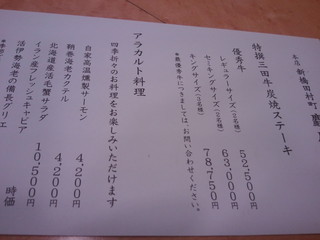 本店 新橋田村町
特撰三田牛炭焼ステーキ
優秀牛
レギュラーサイズ(2名様) 52,500円
セミキングサイズ(2名様) 63,000円
キングサイズ(2名様) 78,750円
*最優秀牛につきましては、お問い合わせください。*
アラカルト料理
四季折々のお料理をお楽しみいただけます
自家高温燻製サーモン 4,200円
鞘巻海老カクテル 4,200円
北海道産活毛蟹サラダ
イラン産フレッシュキャビア 10,500円
活伊勢海老の備長グリエ 時価